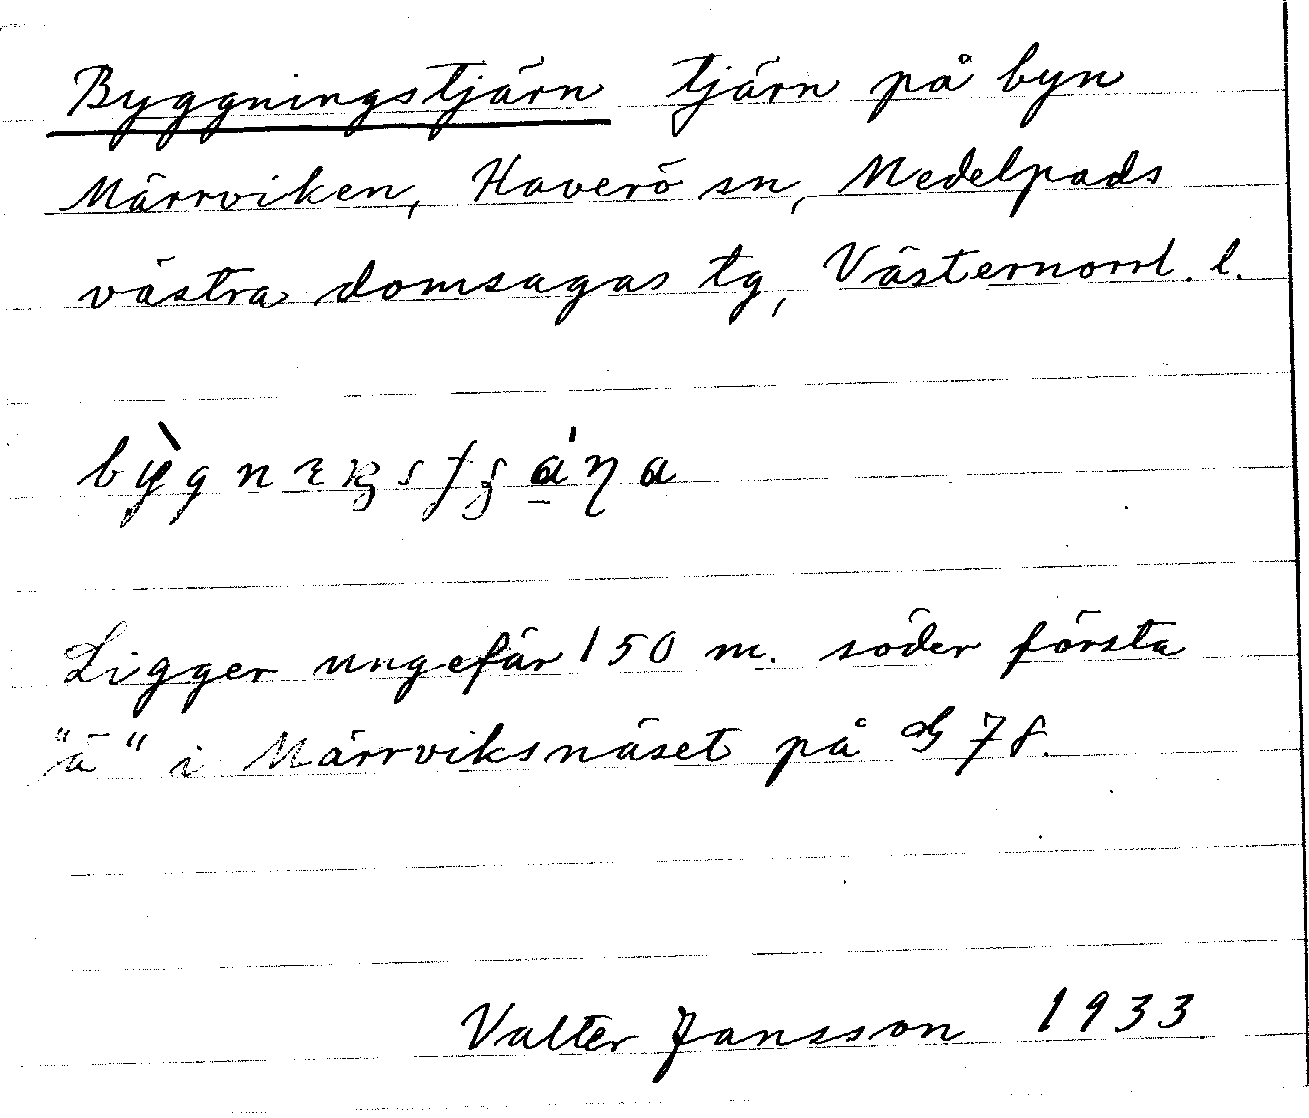 Byggningstjärn tjärn på byn
Märrviken, Haverö sn, Medelpads
västra domsagas tg, Västernorrl. l.
Ligger ungefär 150 m. söder första
"ä" i Märrviksnäset på G 78.
Valter Jansson 1933